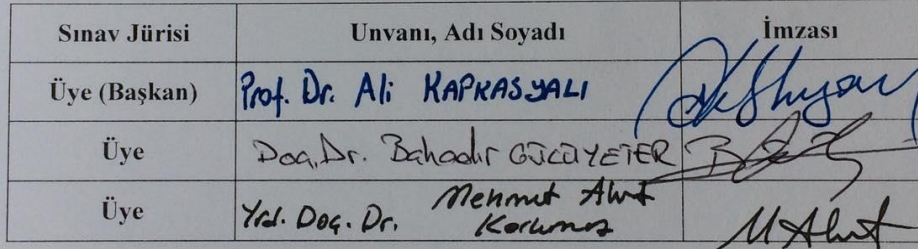 Sınav Jürisi Unvanı, Adı Soyadı İmzası
Üye (Başkan) Prof. Dr. Ali KAPKASYALI
Üye Doç. Dr. Bahadır GÜCÜYETER
Üye Yrd. Doç. Dr. Mehmet Ahmet
Korkmaz